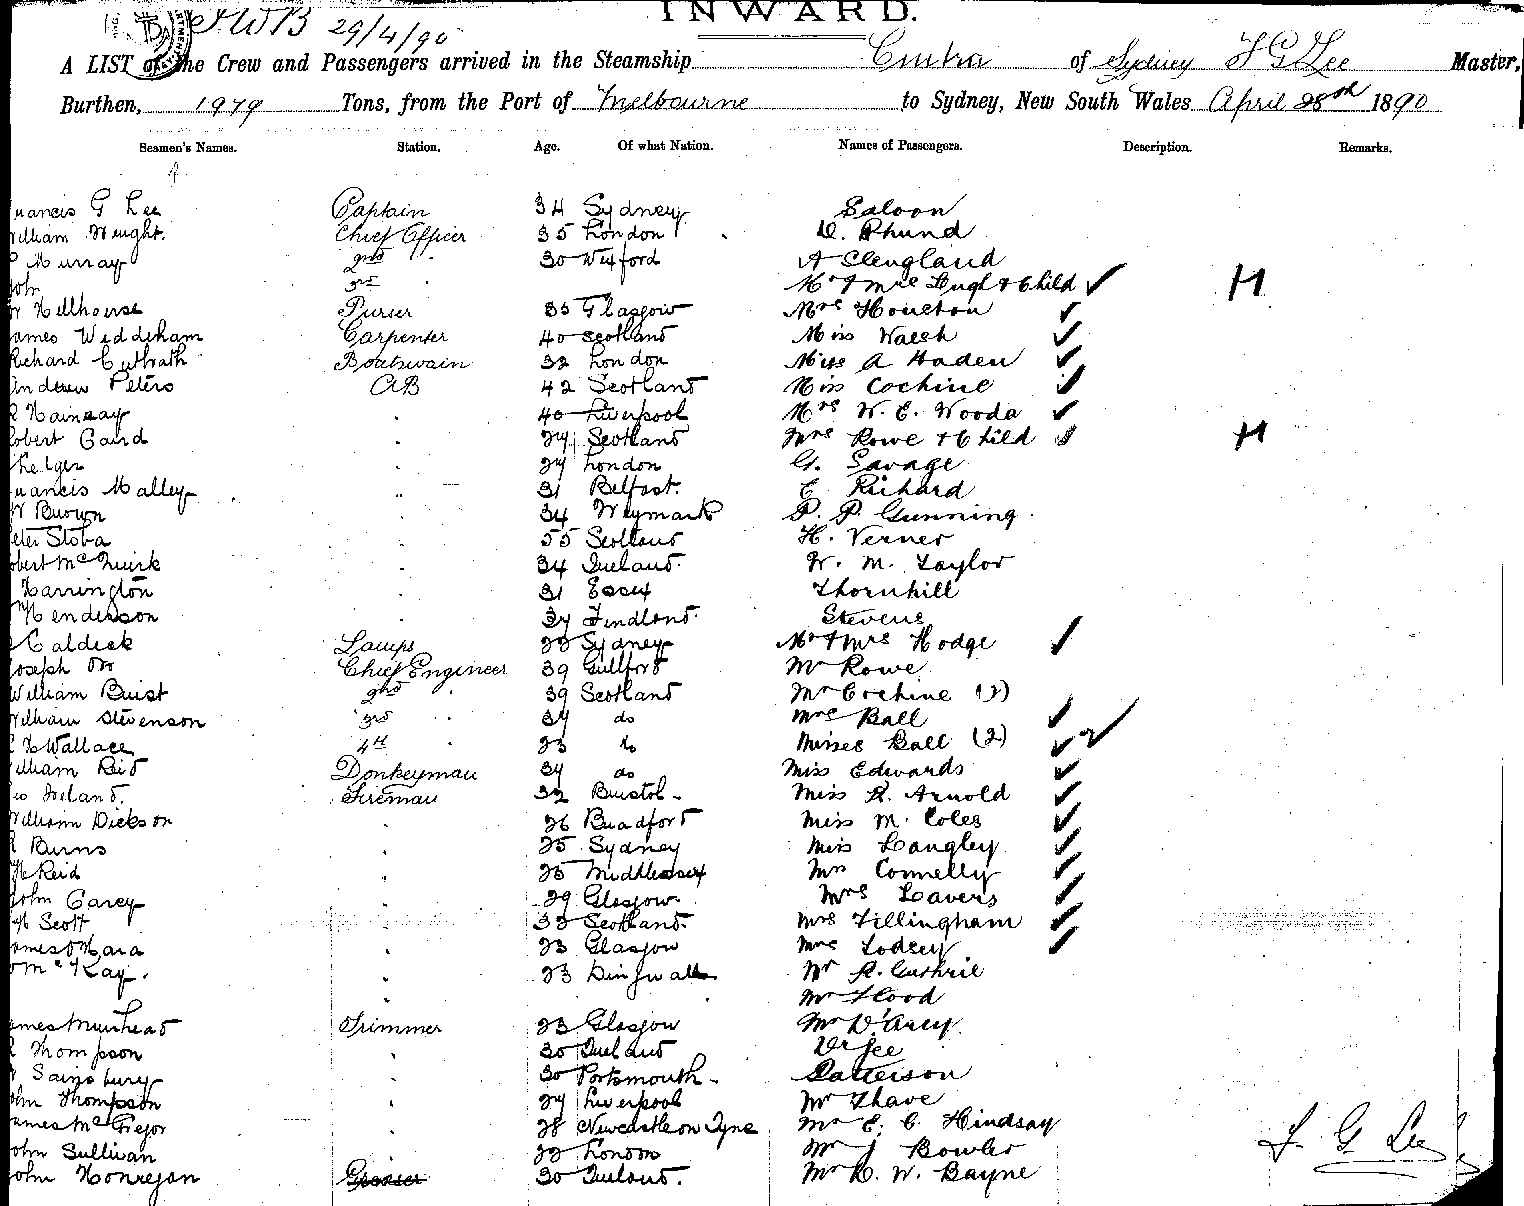 INWARD.
JWB 29/4/90
A LIST of the Crew and Passengers arrived in the Steamship Cintra of Sydney F G Lee Master,
Burthen, 1979 Tons, from the Port of Melbourne to Sydney, New South Wales April 28th 1890
Seamen's Names. Station. Age. Of what Nation. Names of Passengers. Description. Remarks.
rancis G Lee Captain 34 Sydney Saloon
William Wright. Chief Officer 35 London
Murray 2nd 30 Wexford A Clengland
ohn 3rd Mr & Mrs & Child H
Hillhouse Purser 35 Glasgow Mrs Houston
ames Weddeham Carpenter 40 Scotland Miss Walsh
Richard Boatswain 32 London Miss A Haden
Andrew Peters AB 42 Scotland Miss Cochine
40 Liverpool Mrs W. E. Wooda
obert Gard 24 Scotland Mrs Rowe & Child H
27 London G. Savage
rancis Malley 31 Belfast. E Richard
W Brown 34 Weymark P. P. Gunning.
eter Stoba 55 Scotland H. Verner
obert McQuirk 34 Ireland. W. M. Taylor
Harrington 31 Essex Thornhill
Henderson 34 Findland. Stevens
Caldick Lamps 28 Sydney Mr & Mrs Hodge
Joseph Orr Chief Engineer 39 Gullford Mr Rowe
William Buist 2nd 39 Scotland Mr Cochine (2)
William Stevenson 3rd 34 do Mrs Ball
Wallace 4th 23 do Misses Ball (2)
illiam Reid Donkeyman 34 do Miss Edwards
eo Ireland. Fireman 32 Bristol Miss R. Arnold
William Dickson 26 Bradford Miss M. Coles
R Burns 25 Sydney Miss Langley
Reid 25 Middlesex Mrs Connelly
John Carey 29 Glasgow Mrs Lavers
Scott 33 Scotland. Mrs Fillingham
ames O'Hara 23 Glasgow Mrs Lodsey
McKay. 23 Dingwall Mr R. Guthrie
Mr Flood
ames Muirhead Trimmer 23 Glasgow Mr D'Arcy
R Thompson 30 Ireland Dr Jee
Sainsbury 30 Portsmouth Patterson
ohn Thompson 24 Liverpool Mr Thave
ames McGregor 28 Newcastle on Tyne Mr E. C. Hindsay
ohn Sullivan 22 London Mr J Bowler
John Honregan Greaser 30 Ireland. Mr R. W. Bayne
F. G Lee